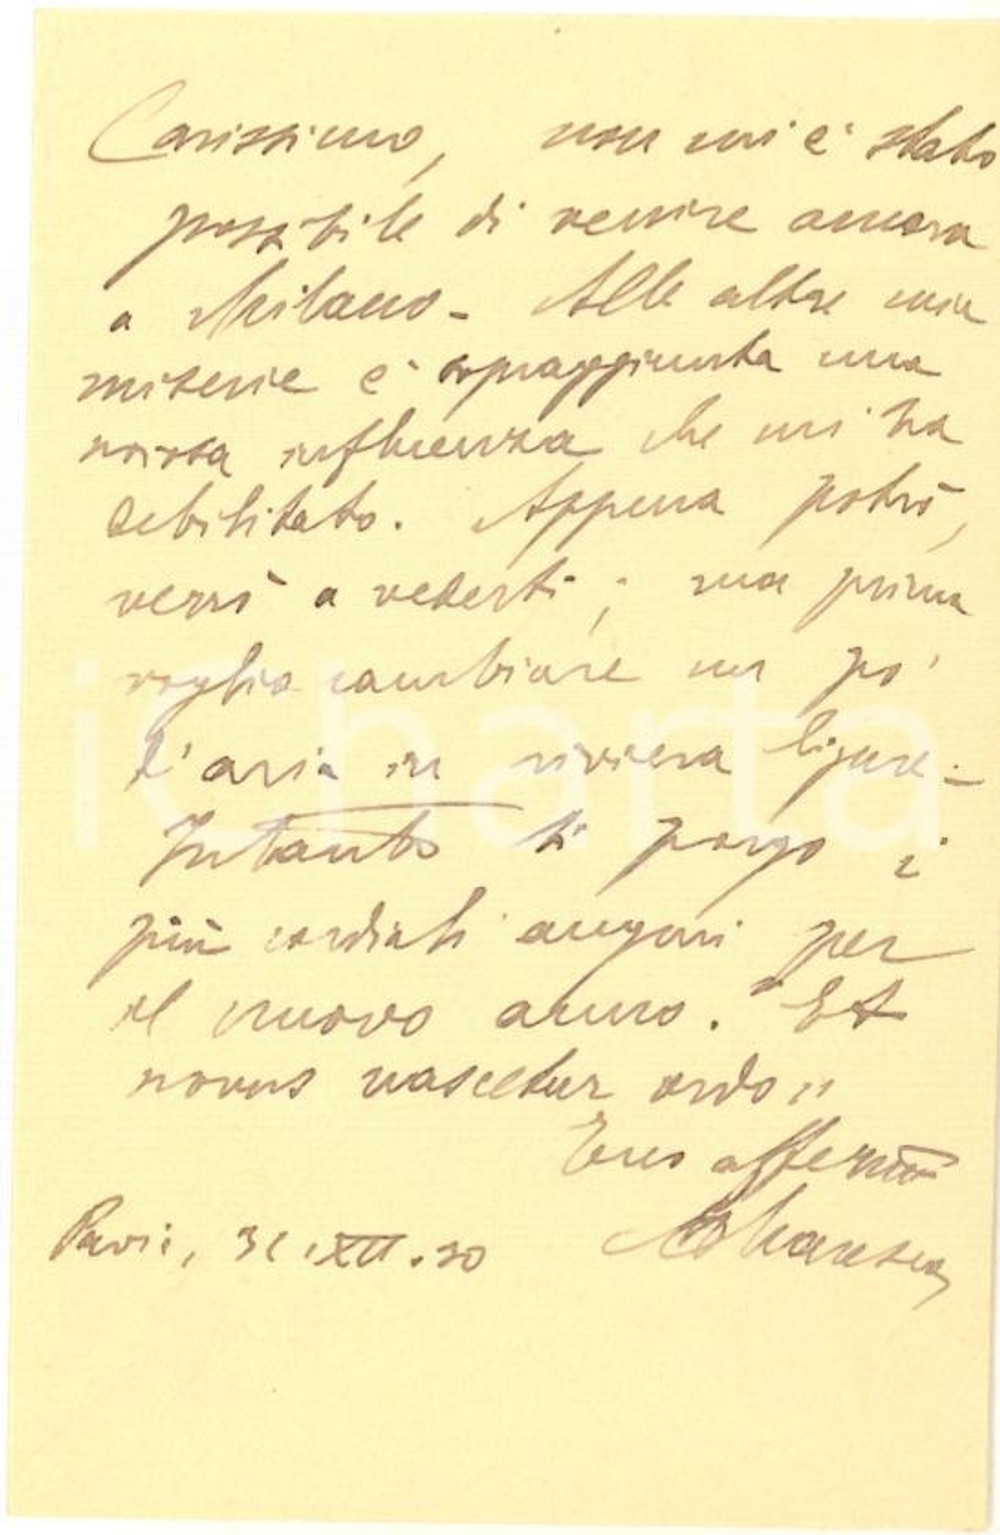 Carissimo, non mi è stato
possibile di venire ancora
a Milano - Alle altre mie
miserie è sopraggiunta una
noiosa influenza che mi ha
debilitato. Appena potrò,
verrò a vederti; ma prima
voglio cambiare un po'
d'aria in riviera ligure. -
Intanto ti porgo i
più cordiali auguri per
il nuovo anno. "Et
novus nascetur ordo"
Tuo affezmo
Pavia, 31.XII.30
iCharta